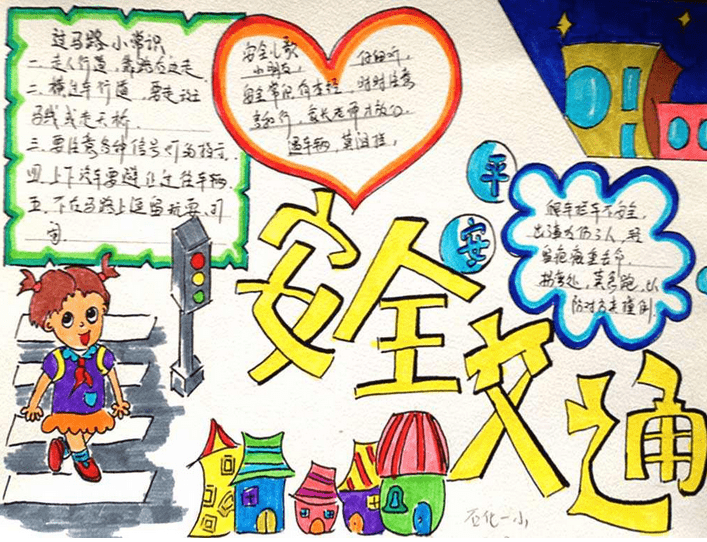 过马路小常识
一.走人行道,靠路右边走.
二.横过车行道,要走斑
马线或走天桥
三.要注意各种信号灯的指示.
四.上下汽车要避让过往车辆.
五.不在马路上逗留玩耍.打
闹.
安全儿歌
小朋友, 仔细听,
安全常识有本经, 时时注意
家长老师才放心.
遇车辆,莫
平
安
爬车拦车不安全,
出事
拐弯处,莫急跑,以
防对方来撞倒.
安全交通
石化一小